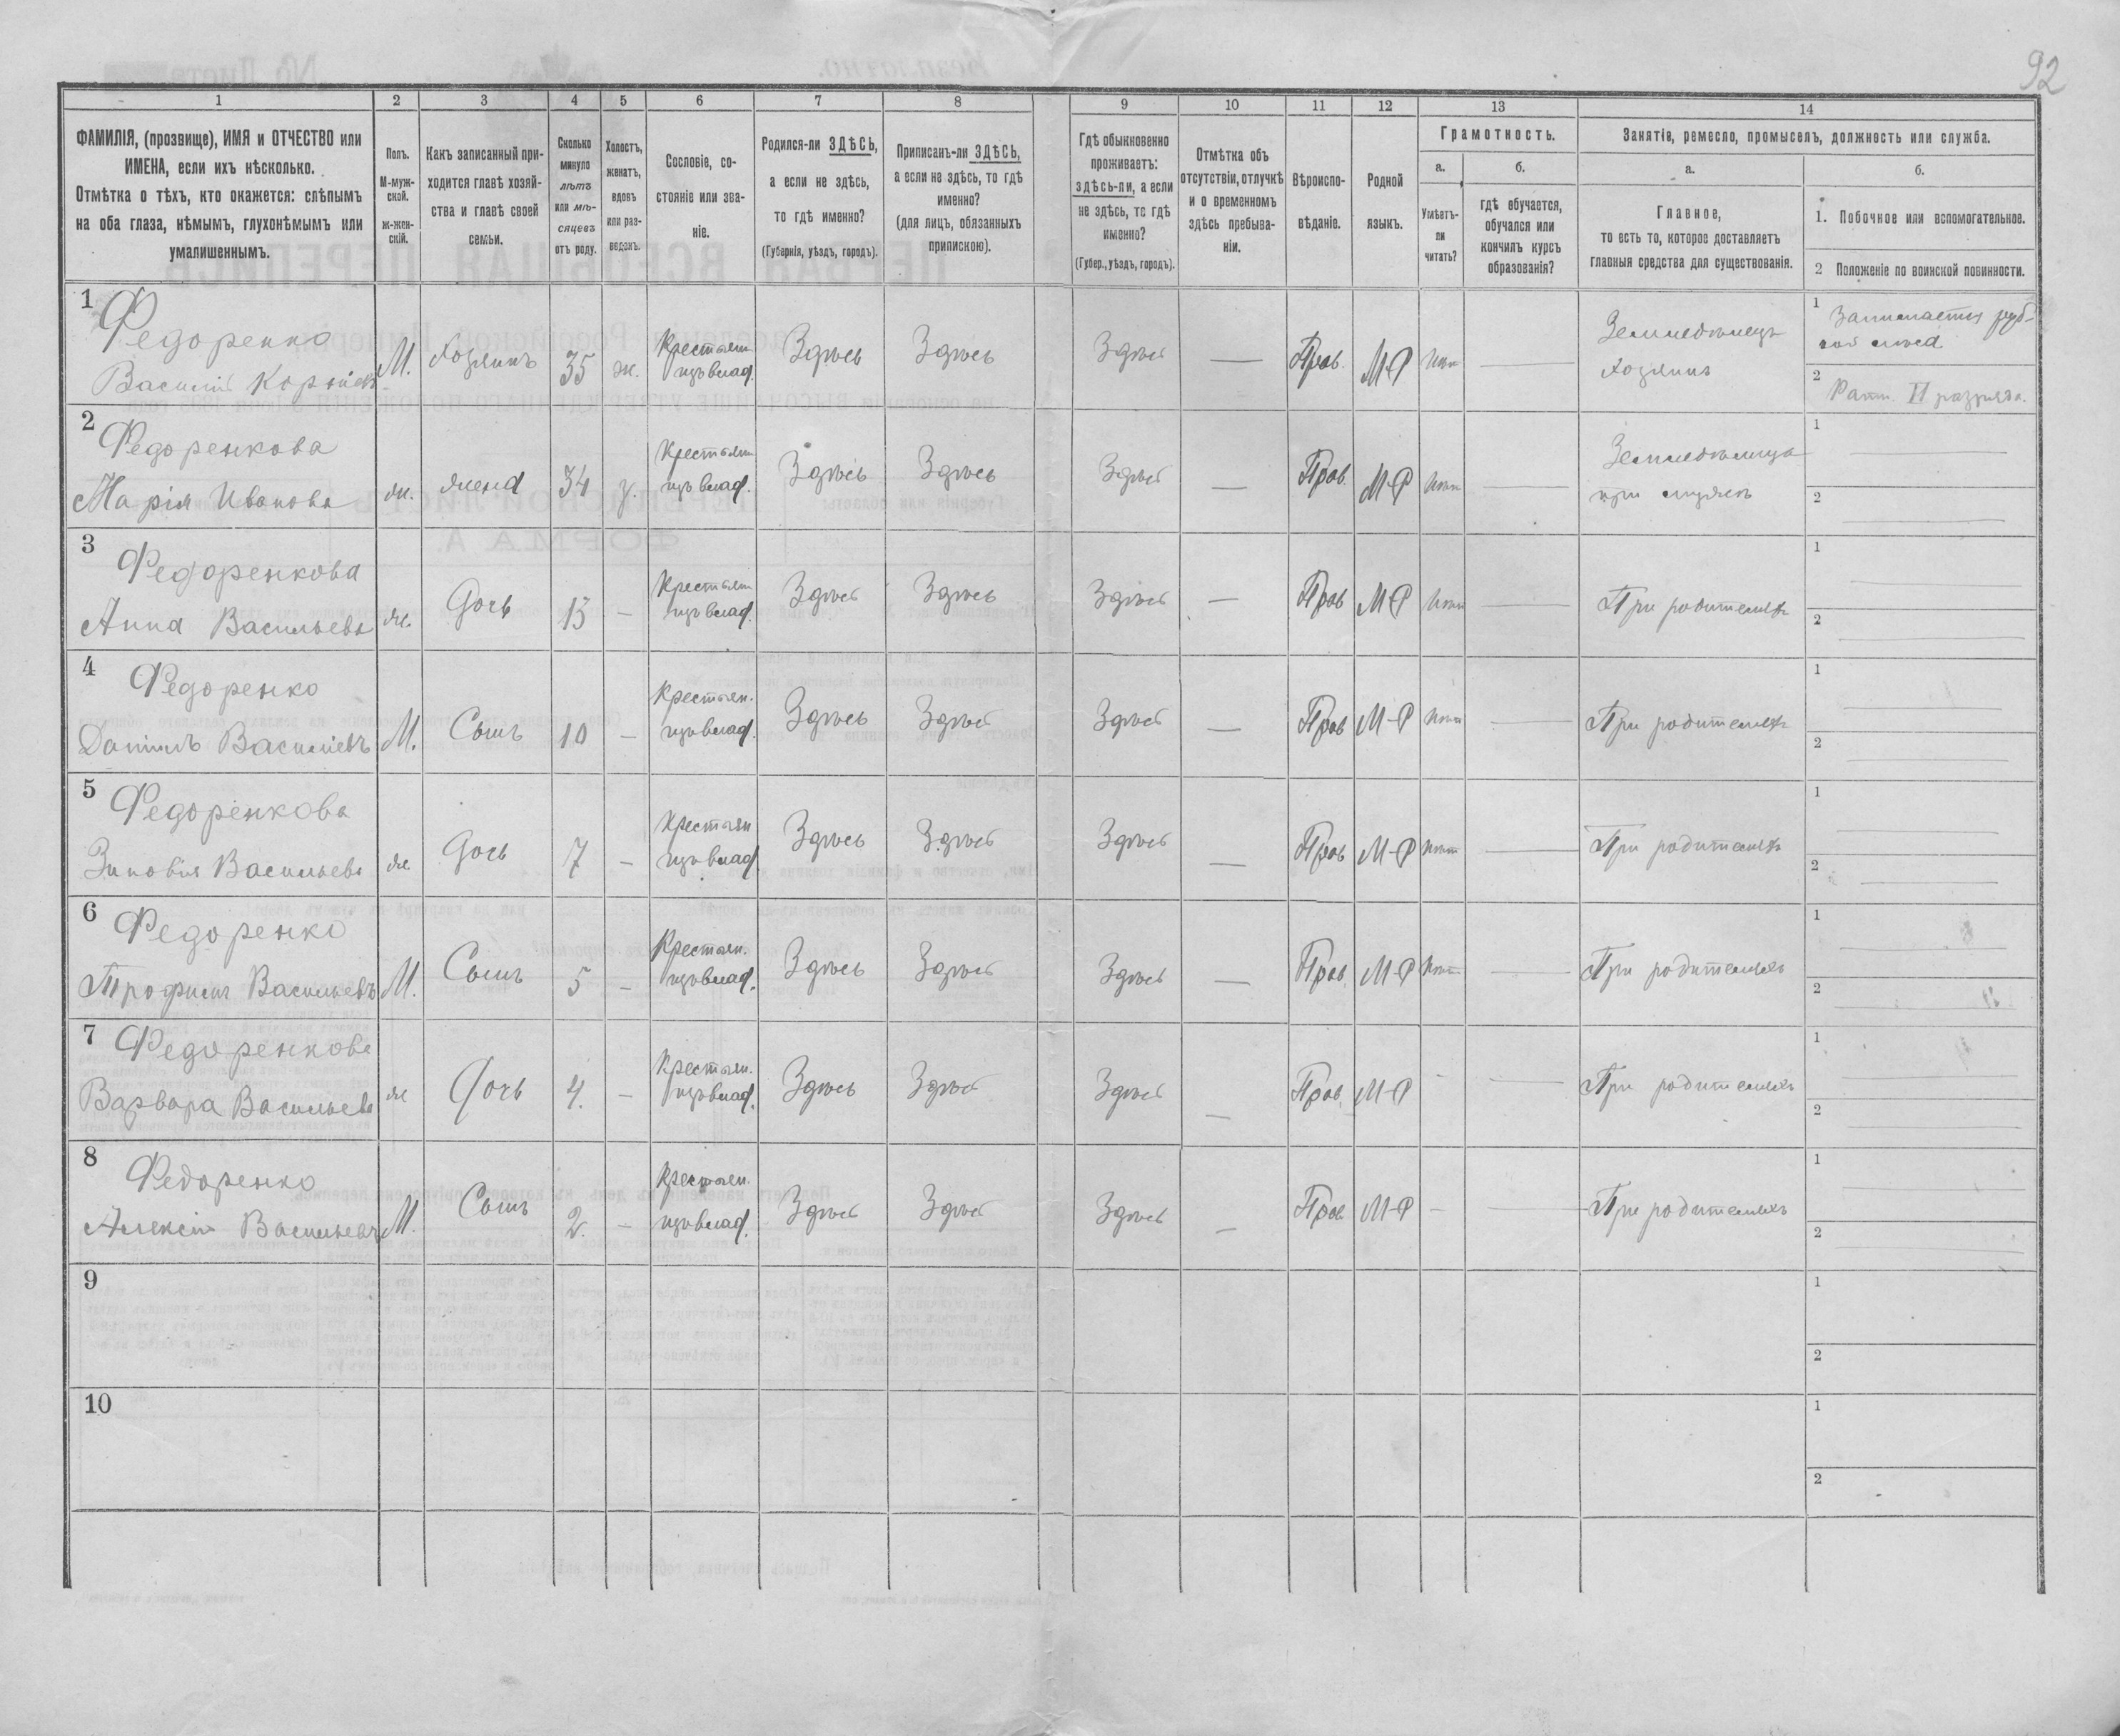 92
1 2 3 4 5 6 7 8 9 10 11 12 13 14
ФАМИЛІЯ, (прозвище), ИМЯ и ОТЧЕСТВО или
ИМЕНА, если ихъ нѣсколько.
Отмѣтка о тѣхъ, кто окажется: слѣпымъ
на оба глаза, нѣмымъ, глухонѣмымъ или
умалишеннымъ.
Полъ.
М-муж-
ской.
ж-жен-
скій.
Какъ записанный при-
ходится главѣ хозяй-
ства и главѣ своей
семьи.
Сколько
минуло
лѣтъ
или мѣ-
сяцевъ
отъ роду.
Холостъ,
женатъ,
вдовъ
или раз-
веденъ.
Сословіе, со-
стояніе или зва-
ніе.
Родился-ли ЗДѢСЬ,
а если не здѣсь,
то гдѣ именно?
(Губернія, уѣздъ, городъ).
Приписанъ-ли ЗДѢСЬ,
а если не здѣсь, то гдѣ
именно?
(для лицъ, обязанныхъ
припискою).
Гдѣ обыкновенно
проживаетъ:
здѣсь-ли, а если
не здѣсь, то гдѣ
именно?
(Губер., уѣздъ, городъ).
Отмѣтка объ
отсутствіи, отлучкѣ
и о временномъ
здѣсь пребыва-
ніи.
Вѣроиспо-
вѣданіе.
Родной
языкъ.
Грамотность.
а.
Умѣетъ-
ли
читать?
б.
гдѣ обучается,
обучался или
кончилъ курсъ
образованія?
Занятіе, ремесло, промыселъ, должность или служба.
а.
Главное,
то есть то, которое доставляетъ
главныя средства для существованія.
б.
1. Побочное или вспомогательное.
2 Положеніе по воинской повинности.
1 Федоренко
Василій Корнiев.
М. Хозяинъ 35 ж.
Крестьян
изъ влад.
Здѣсь Здѣсь Здѣсь — Прав. М-Р Нѣт —
Земледѣлецъ
хозяинъ
1 Занимается руб-
кой
2 Ратн. II разряда.
2 Федоренкова
Марія Иванова
ж. жена 34 з.
Крестьян
изъ влад.
Здѣсь Здѣсь Здѣсь — Прав. М-Р Нѣт —
Земледѣлица
при мужѣ
1 —
2 —
3 Федоренкова
Анна Васильева
ж. Дочь 13 —
Крестьян
изъ влад.
Здѣсь Здѣсь Здѣсь — Прав М-Р Нѣт —
При родителяхъ
1 —
2 —
4 Федоренко
Даніилъ Василіевъ
М. Сынъ 10 —
Крестьян.
изъ влад.
Здѣсь Здѣсь Здѣсь — Прав М-Р Нѣт —
При родителяхъ
1 —
2 —
5 Федоренкова
Зиновія Васильева
ж Дочь 7 —
Крестьян
изъ влад.
Здѣсь Здѣсь Здѣсь — Прав М-Р Нѣт —
При родителяхъ
1 —
2 —
6 Федоренко
Трофимъ Васильевъ
М. Сынъ 5 —
Крестьян.
изъ влад.
Здѣсь Здѣсь Здѣсь — Прав. М-Р Нѣт —
При родителяхъ
1 —
2 —
7 Федоренкова
Варвара Васильева
ж Дочь 4. —
Крестьян.
изъ влад.
Здѣсь Здѣсь Здѣсь — Прав. М-Р - —
При родителяхъ
1 —
2 —
8 Федоренко
Алексій Васильевъ
М. Сынъ 2. —
Крестьян.
изъ влад.
Здѣсь Здѣсь Здѣсь — Прав. М-Р — —
При родителяхъ
1 —
2 —
9
1
2
10
1
2